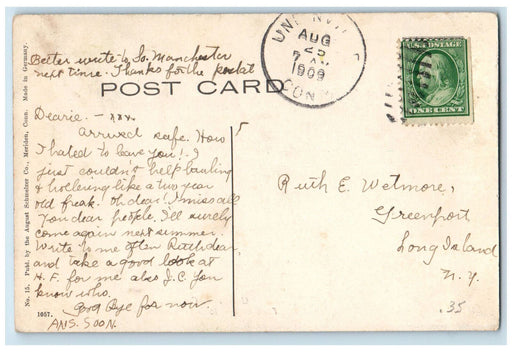 Better write to So. Manchester
next time. Thanks for the postal
POST CARD
UNIONVILLE
AUG
25
7 AM
1909
CONN
U.S. POSTAGE
ONE CENT
Dearie. —
Arrived safe. How
I hated to leave you! I
just couldn't help bawling
& hollering like a two year
old freak. Oh dear! I miss all
you dear people, I'll surely
come again next summer.
Write to me often Ruth dear,
and take a good look at
H. F. for me also J.C. you
know who.
Good Bye for now.
ANS. SOON.
Ruth E. Wetmore,
Greenport
Long Island
N.Y.
.35
No. 15. Publ. by the August Schmelzer Co., Meriden, Conn. Made in Germany.
1057.